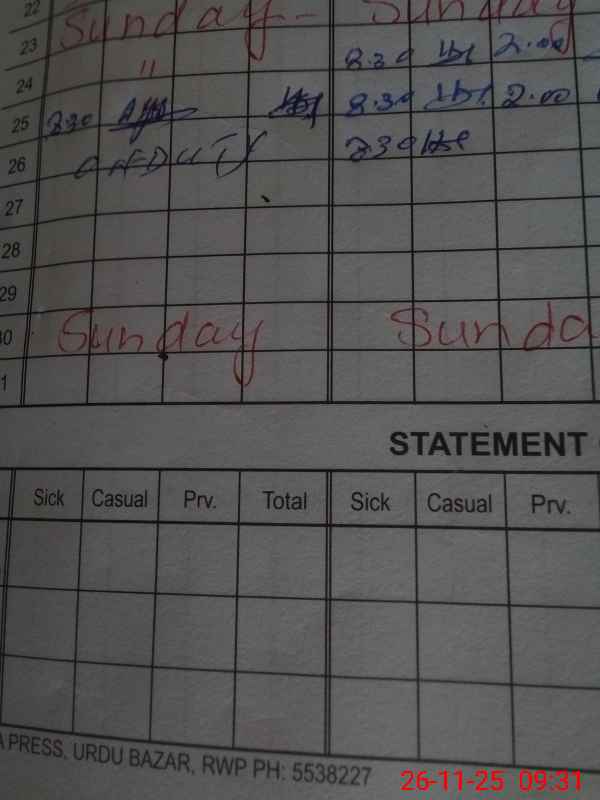 22
Sunday - Sunday
23 " 8.30 2.00
24 8.30 2.00
25 830 830
26 OFFDUTY
27
28
29
30 Sunday Sunda
1
STATEMENT
Sick Casual Prv. Total Sick Casual Prv.
A PRESS, URDU BAZAR, RWP PH: 5538227
26-11-25 09:31